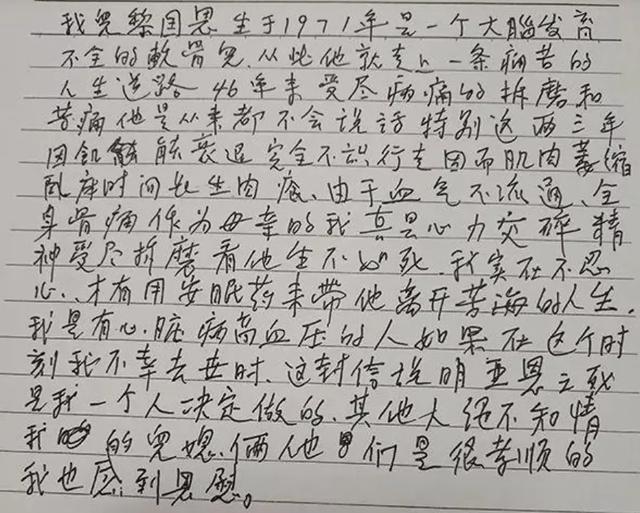 我兒黎国恩生于1971年是一个大腦发育
不全的軟骨兒.从此他就走上一条痛苦的
人生道路46年来受尽病痛的折磨和
苦痛他是从来都不会说话特别这两三年
因飢餓衰退完全不识行走因而肌肉萎缩
臥床时间长生肉疮、由于血气不流通、全
身骨痛作为母亲的我真是心力交碎精
神受尽折磨看他生不如死.我实在不忍
心、才有用安眠药来帶他离开苦海的人生.
我是有心脏病高血压的人如果在这个时
刻我不幸去世时、这封信说明亚恩之死
是我一个人决定做的、其他人绝不知情
我的兒媳俩他们是很孝顺的
我也感到恩慰。